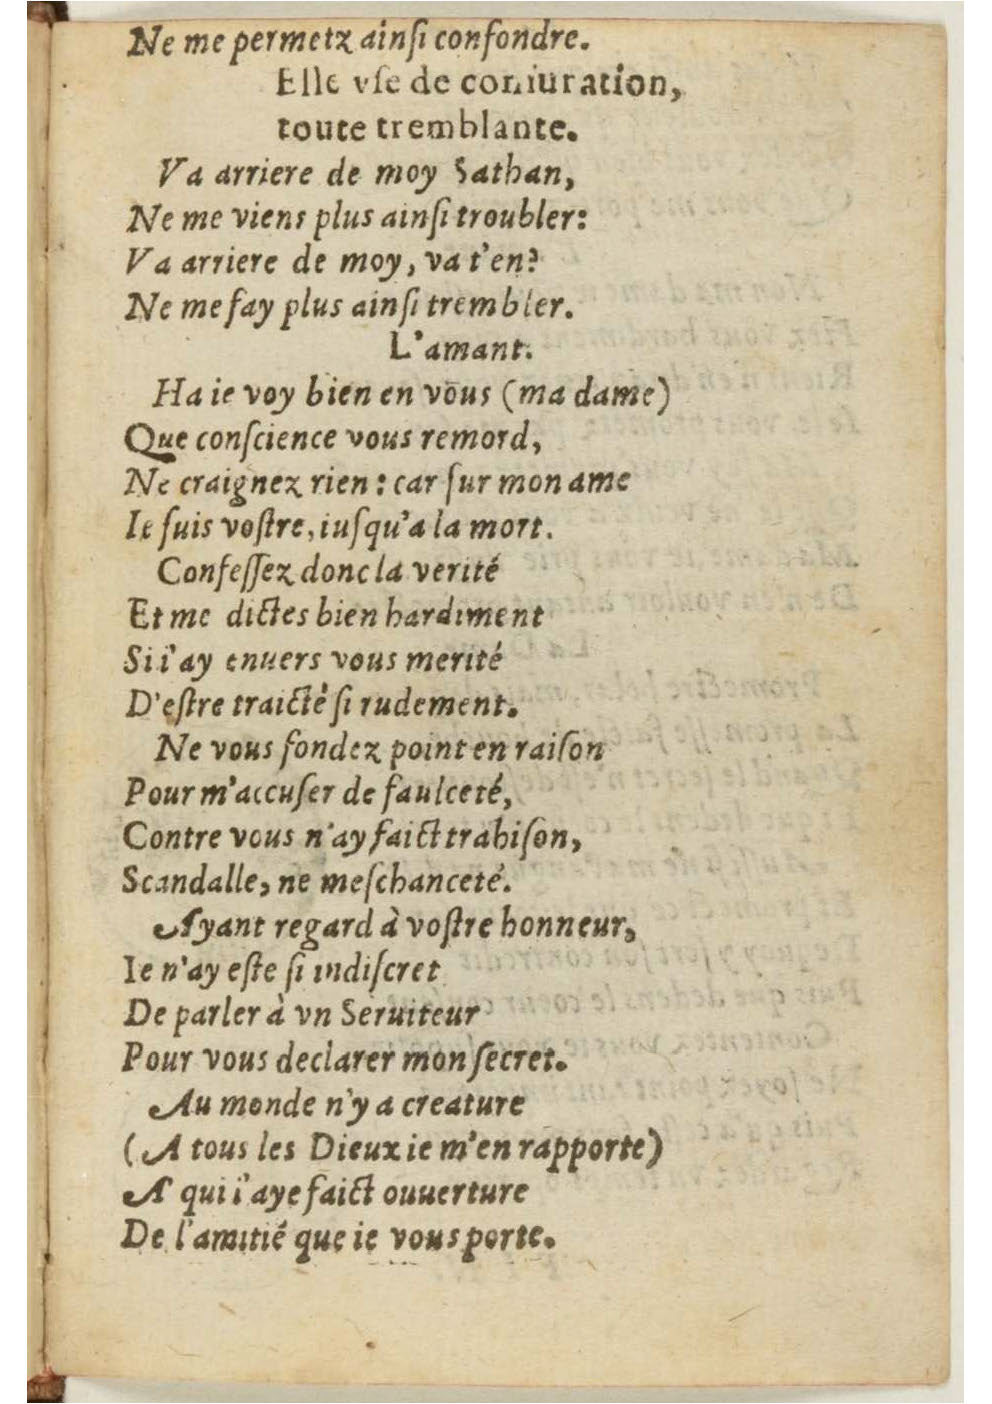 Ne me permetz ainſi confondre.
Elle vſe de coniuration,
toute tremblante.
Va arriere de moy Sathan,
Ne me viens plus ainſi troubler:
Va arriere de moy, va t'en?
Ne me fay plus ainſi trembler.
L'amant.
Ha ie voy bien en vous (ma dame)
Que conſcience vous remord,
Ne craignez rien: car ſur mon ame
Ie ſuis voſtre, iuſqu'a la mort.
Confeſſez donc la verité
Et me dictes bien hardiment
Si i'ay enuers vous merité
D'eſtre traicté ſi rudement.
Ne vous fondez point en raiſon
Pour m'accuſer de faulceté,
Contre vous n'ay faict trahiſon,
Scandalle, ne meſchanceté.
Ayant regard à voſtre honneur,
Ie n'ay eſte ſi indiſcret
De parler à vn Seruiteur
Pour vous declarer mon ſecret.
Au monde n'y a creature
(A tous les Dieux ie m'en rapporte)
A qui i'aye faict ouuerture
De l'amitié que ie vous porte.